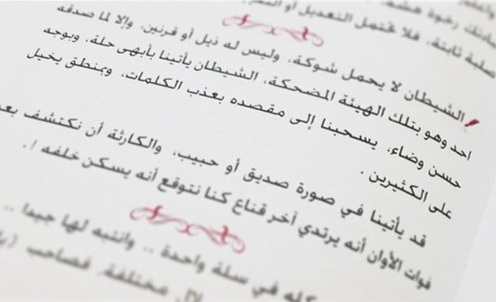 صلبة ثابتة، فلا تحتمل التعديل أو
الشيطان لا يحمل شوكة، وليس له ذيل أو قرنين، وإلا لما صدقه
احد وهو بتلك الهيئة المضحكة، الشيطان يأتينا بأبهى حلة، وبوجه
حسن وضاء، يسحبنا إلى مقصده بعذب الكلمات، وبمنطق يخيل
على الكثيرين .
قد يأتينا في صورة صديق أو حبيب، والكارثة أن نكتشف بعد
فوات الأوان أنه يرتدي آخر قناع كنا نتوقع أنه يسكن خلفه !.
كله في سلة واحدة .. وانتبه لها جيدا ..
مختلفة، فصاحب